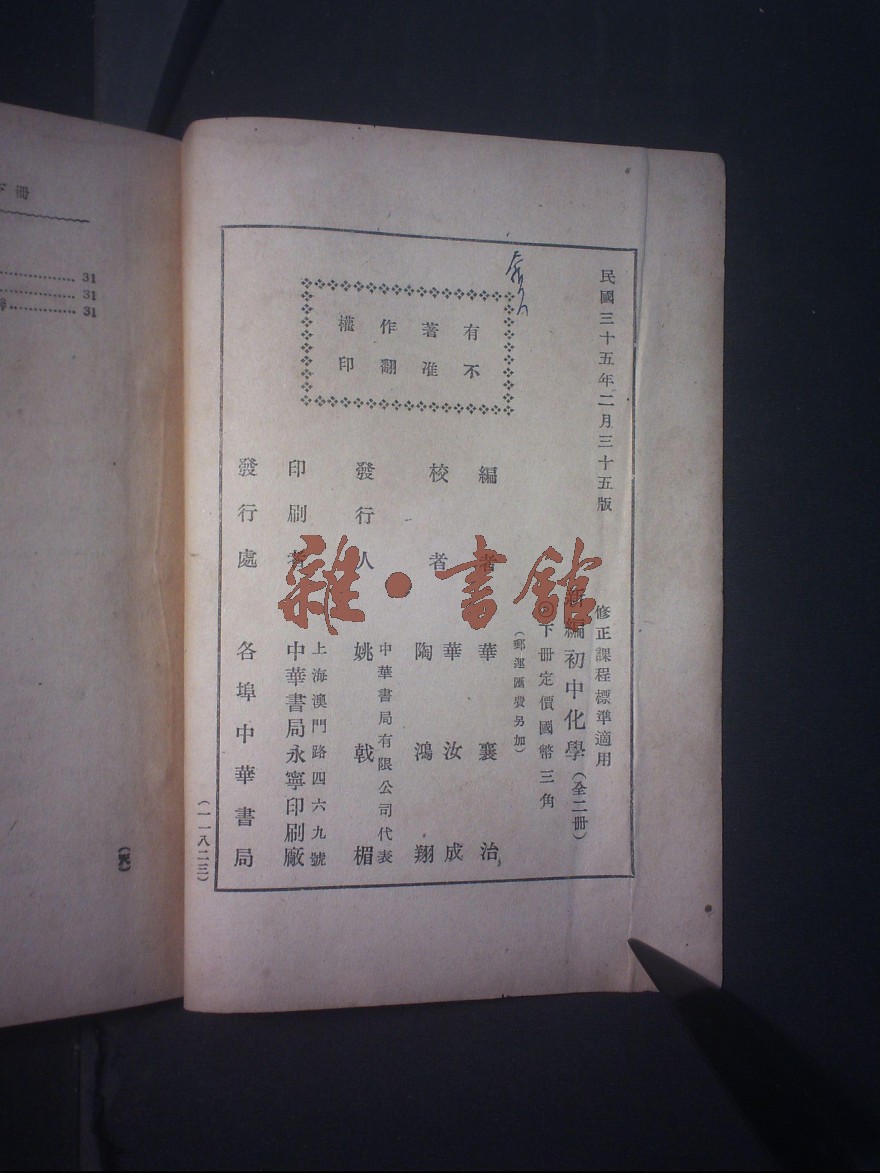 民國三十五年二月三十五版
修正課程標準適用
新編初中化學（全二册）
下册定價國幣三角
（郵運匯費另加）
有著作權
不准翻印
編者 華襄治
校者 華汝成
陶鴻翔
發行人 中華書局有限公司代表
姚戟楣
印刷者 上海澳門路四六九號
中華書局永寧印刷廠
發行處 各埠中華書局
（一一八二三）
雜·書館
下册
31
31
31